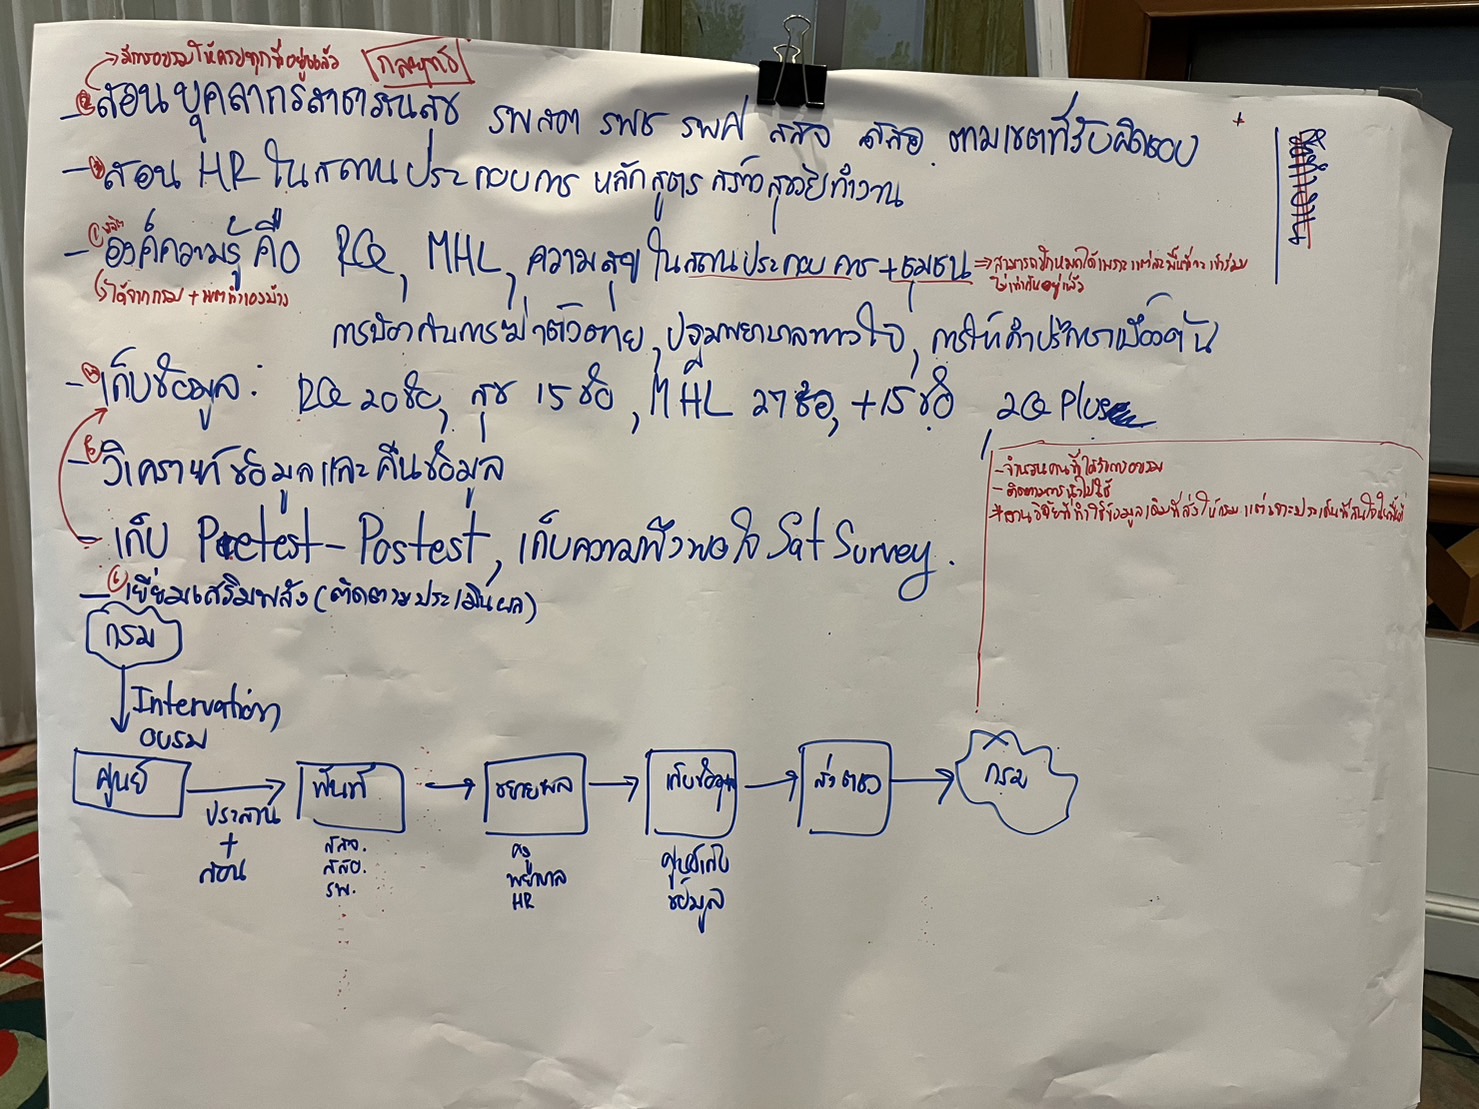 มีการอบรมให้ครบทุกที่อยู่แล้ว กลยุทธ์
- ② สอนบุคลากรสาธารณสุข รพสต รพช รพศ สสจ สสอ. ตามเขตที่รับผิดชอบ
- ③ สอน HR ในสถานประกอบการ หลักสูตร สร้างสุขวัยทำงาน
- ① องค์ความรู้ คือ RQ, MHL, ความสุขในสถานประกอบการ + ชุมชน ⇒ สามารถ
ไม่เท่ากันอยู่แล้ว
ได้จากกรม +
การป้องกันการฆ่าตัวตาย, ปฐมพยาบาลทางใจ, การให้คำปรึกษาเบื้องต้น
- ④ เก็บข้อมูล : RQ 20 ข้อ, สุข 15 ข้อ, MHL 27 ข้อ, +15 ข้อ 2Q Plus
- ⑤ วิเคราะห์ข้อมูลและคืนข้อมูล
- จำนวนคนที่ได้รับการอบรม
- ติดตามการนำไปใช้
* งานวิจัยที่ทำใช้ข้อมูลเดิมที่ส่งให้กรม แต่เจาะประเด็นที่สนใจในพื้นที่
- เก็บ Pretest - Postest, เก็บความพึงพอใจ Sat Survey.
- ⑥ เยี่ยมเสริมพลัง (ติดตามประเมินผล)
กรม
Intervation
อบรม
ศูนย์ พื้นที่ ขยายผล เก็บข้อมูล ส่ง ตชว กรม
ประสาน
+
สอน
สสจ.
สสอ.
รพ.
ครู
พยาบาล
HR
ศูนย์เก็บ
ข้อมูล